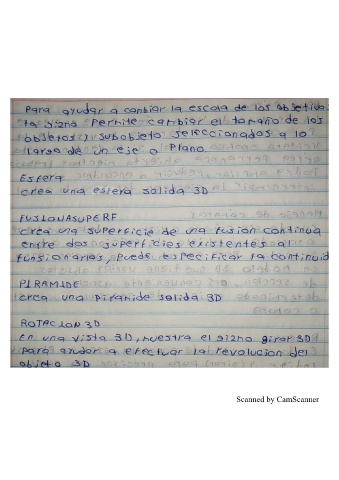 Para ayudar a cambiar la escala de los objetivos
la gizno permite cambiar el tamaño de los
objetos y subobjeto seleccionados a lo
largo de un eje o Plano
Esfera
crea una esfera solida 3D
FUSIONASUPERF
crea una superficie de una fusion continua
entre dos superficies existentes al
funsionarlas, puede especificar la continuid
PIRAMIDE
crea una Piramide solida 3D
ROTACION 3D
En una vista 3D, muestra el gizno girar 3D
para ayudar a efectuar la revolucion del
objeto 3D
Scanned by CamScanner